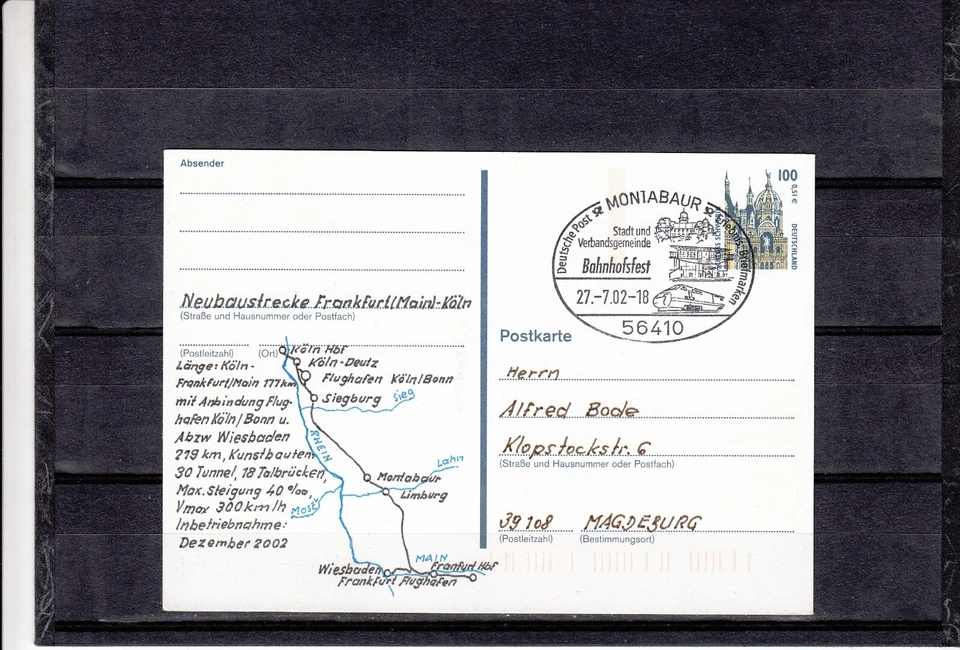 Absender
Neubaustrecke Frankfurt(Main)-Köln
(Straße und Hausnummer oder Postfach)
(Postleitzahl) (Ort)
Länge: Köln-
Frankfurt/Main 177 km
mit Anbindung Flug-
hafen Köln/Bonn u.
Abzw Wiesbaden
219 km, Kunstbauten
30 Tunnel, 18 Talbrücken,
Max. Steigung 40 ‰,
Vmax 300 km/h
Inbetriebnahme:
Dezember 2002
Köln Hbf
Köln-Deutz
Flughafen Köln/Bonn
Siegburg
Sieg
RHEIN
Lahn
Montabaur
Limburg
Mosel
MAIN
Wiesbaden
Franfurt Hbf
Frankfurt Flughafen
MONTABAUR
Deutsche Post
Erlebnis: Briefmarken
Stadt und
Verbandsgemeinde
Bahnhofsfest
27.-7.02-18
56410
100
0,51 €
DEUTSCHLAND
Postkarte
Herrn
Alfred Bode
Klopstockstr. 6
(Straße und Hausnummer oder Postfach)
39108 MAGDEBURG
(Postleitzahl) (Bestimmungsort)